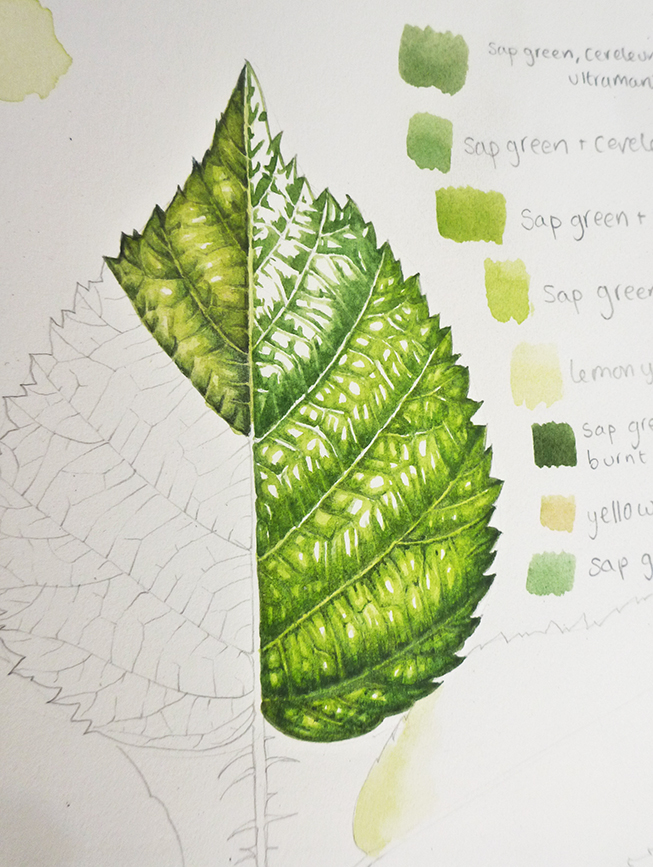 Sap green, cereleum
ultraman
Sap green + cerele
Sap green +
Sap green
lemon y
Sap gre
burnt
yellow
Sap g